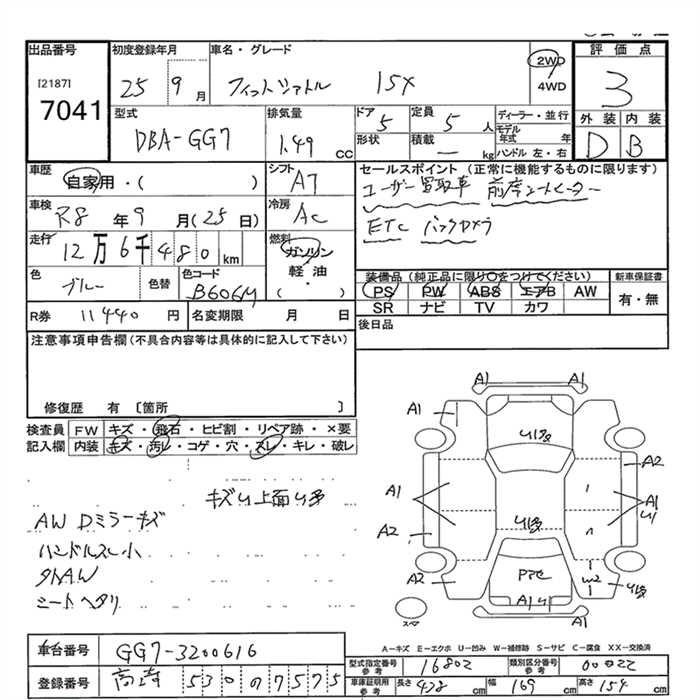 出品番号 初度登録年月 車名・グレード 評価点
[2187] 25 9月 フィットシャトル 15X 2WD 4WD 3
7041
型式 排気量 ドア 定員 ディーラー・並行 外装 内装
DBA-GG7 1.49 cc 5 5人 モデル年式 年 D B
形状 積載 — kg ハンドル 左・右
車歴 シフト セールスポイント (正常に機能するものに限ります)
自家用・( ) AT ユーザー買取車 前席シートヒーター
車検 冷房
R8年9月(25日) AC ETC バックカメラ
走行 燃料
12万6千480km ガソリン
軽油
( )
色 色替 色コード 装備品(純正品に限り○をつけてください) 新車保証書
ブルー B606M PS PW ABS エアB AW 有・無
SR ナビ TV カワ
R券 11440円 名変期限 月 日 後日品
注意事項申告欄(不具合内容等は具体的に記入して下さい)
修復歴 有 〔箇所 〕
検査員 FW キズ・飛石・ヒビ割・リペア跡・×要
記入欄 内装 キズ・汚レ・コゲ・穴・スレ・キレ・破レ
キズU上面U多
AW Dミラーキズ
ハンドルスレ小
外AW
シートヘタリ
A1 A1
A1 A1
U1多
A2
A1 A1
U1
A2 U1多
A2 Pマモ U2 U1多
A1U A1
スマ
A-キズ E-エクボ U-凹み W-補修跡 S-サビ C-腐食 XX-交換済
車台番号 GG7-3200616
型式指定番号 参考 16802 類別区分番号 参考 0022
登録番号 高崎 530 の 7575
車庫証明用 参考 長さ 438cm 幅 169cm 高さ 154cm